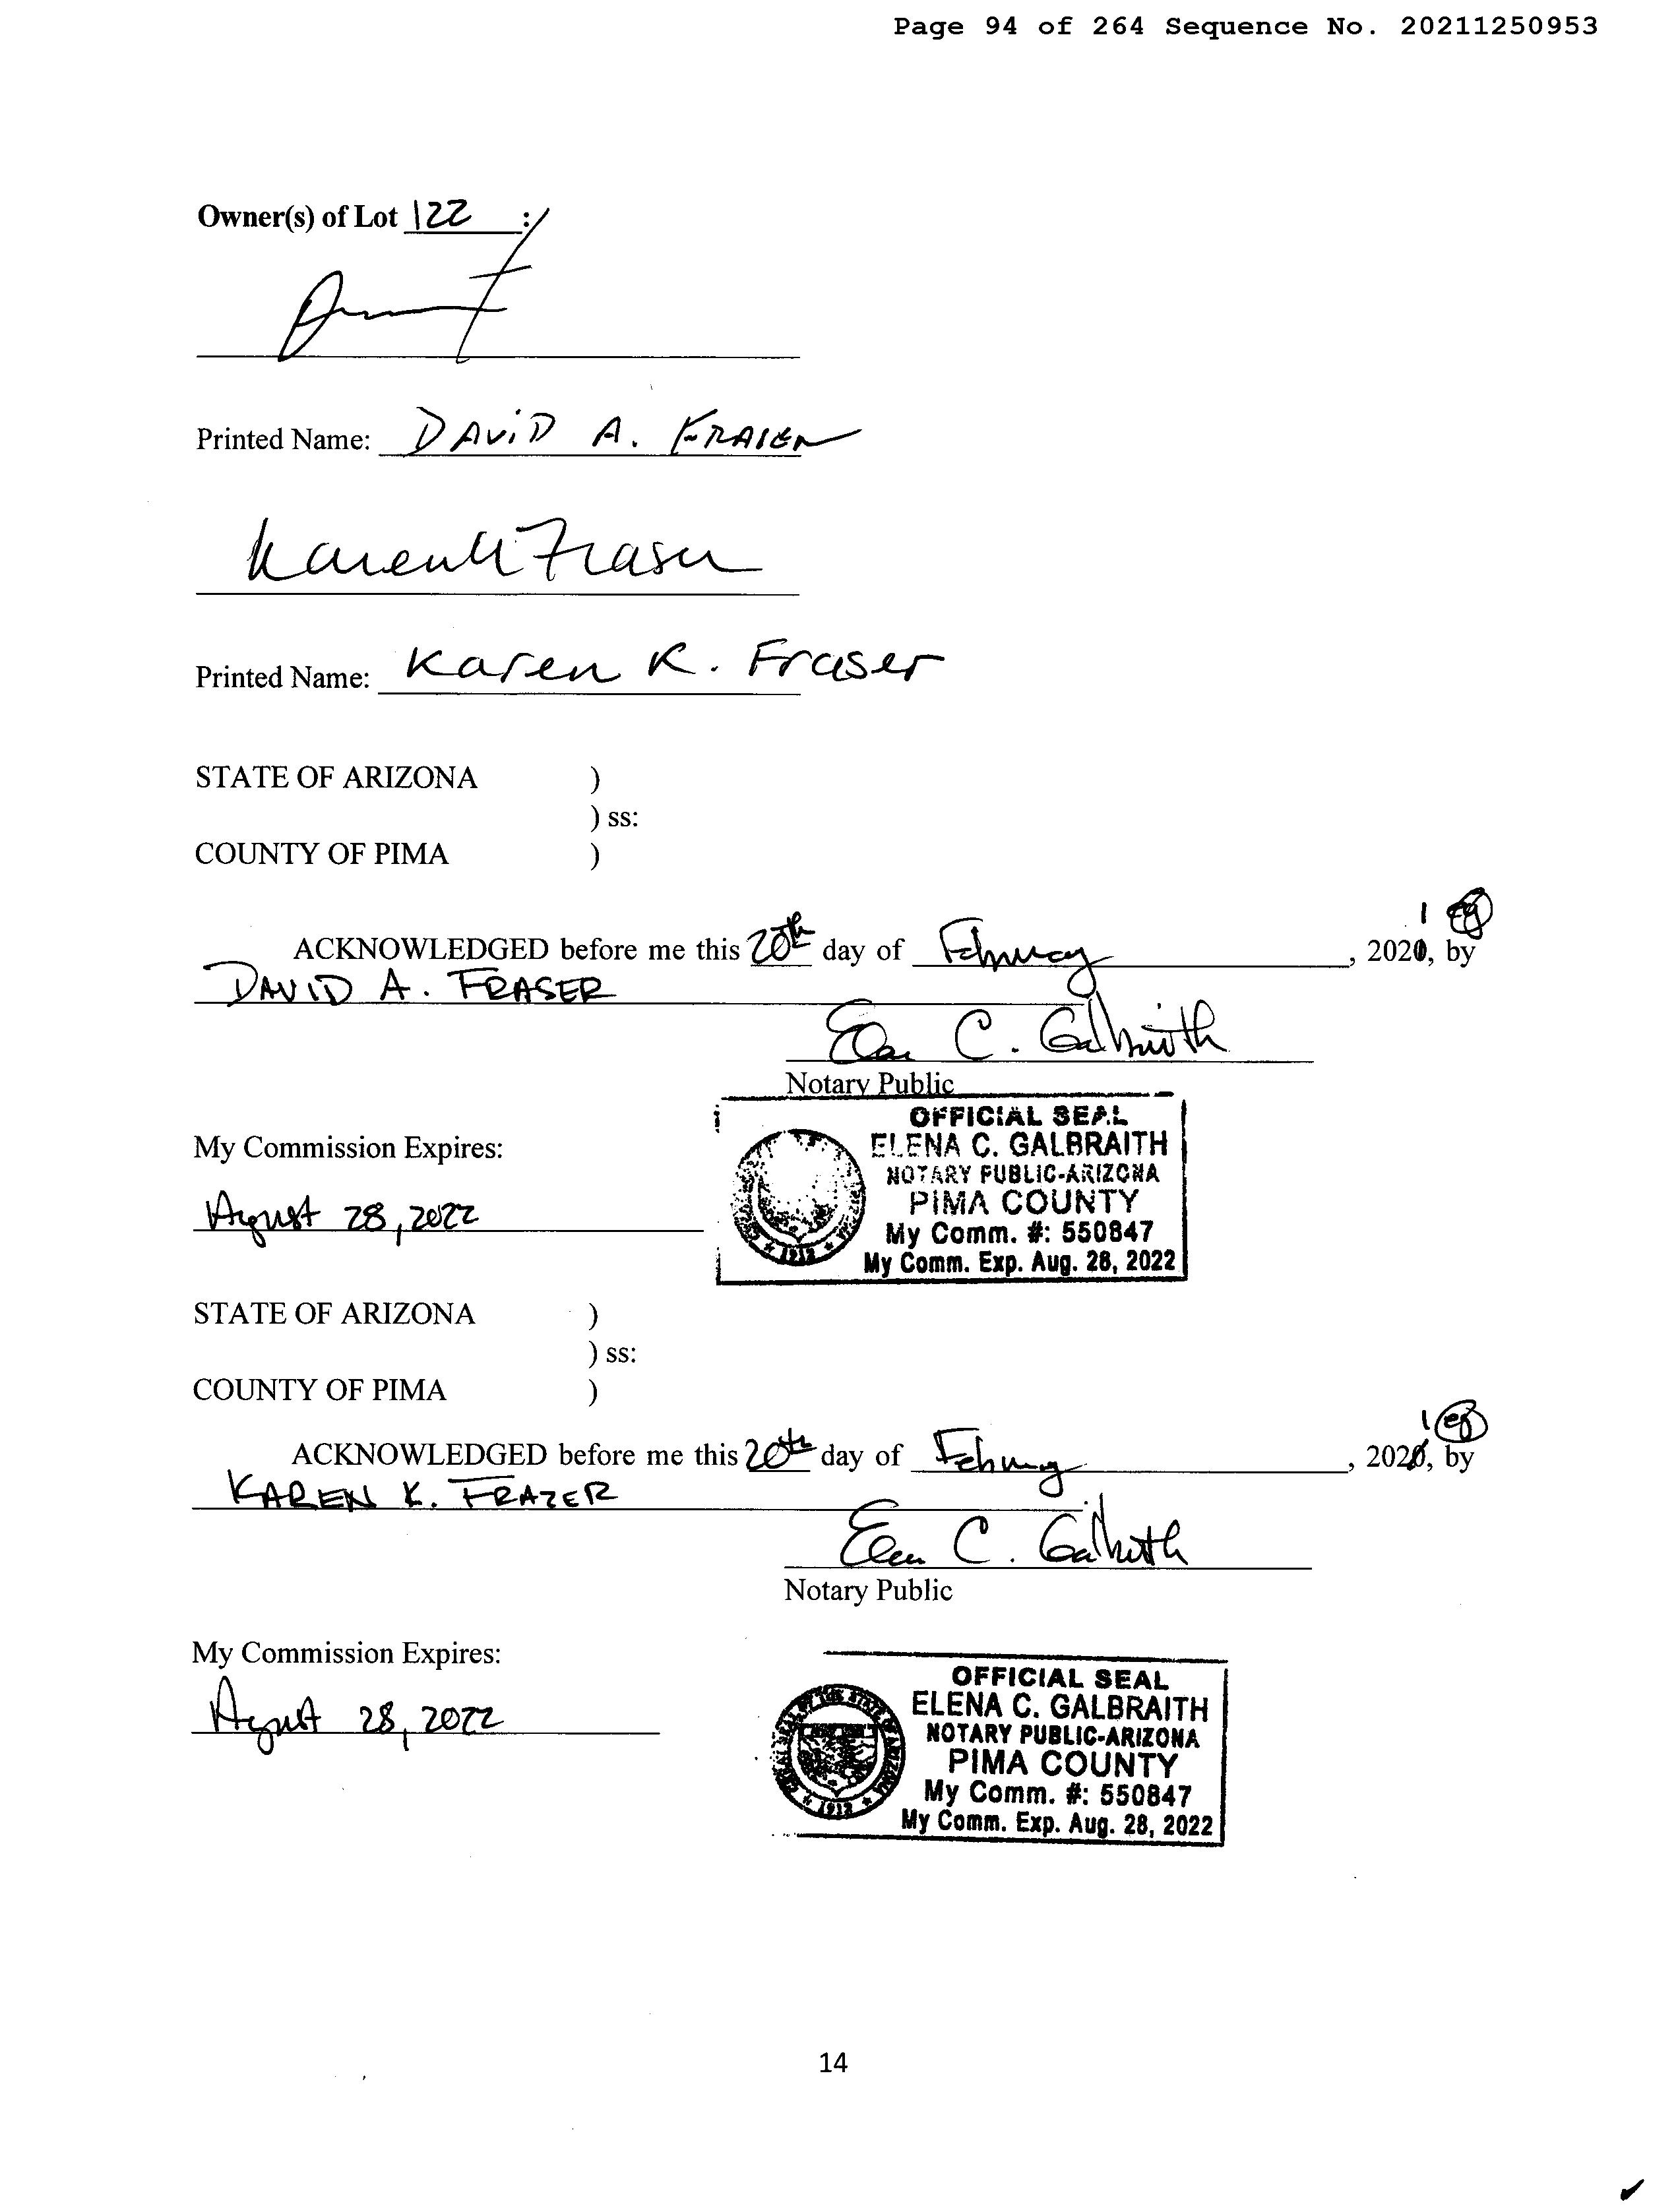 Page 94 of 264 Sequence No. 20211250953
Owner(s) of Lot 122 :
Printed Name: DAVID A. FRASER
Karen K Fraser
Printed Name: Karen K. Fraser
STATE OF ARIZONA )
) ss:
COUNTY OF PIMA )
1 eg
ACKNOWLEDGED before me this 20th day of February, 2020, by
DAVID A. FRASER
Elena C. Galbraith
Notary Public
OFFICIAL SEAL
ELENA C. GALBRAITH
NOTARY PUBLIC-ARIZONA
PIMA COUNTY
My Comm. #: 550847
My Comm. Exp. Aug. 28, 2022
1912
My Commission Expires:
August 28, 2022
STATE OF ARIZONA )
) ss:
COUNTY OF PIMA )
1 eg
ACKNOWLEDGED before me this 20th day of February, 2020, by
KAREN K. FRAZER
Elena C. Galbraith
Notary Public
My Commission Expires:
August 28, 2022
OFFICIAL SEAL
ELENA C. GALBRAITH
NOTARY PUBLIC-ARIZONA
PIMA COUNTY
My Comm. #: 550847
My Comm. Exp. Aug. 28, 2022
GREAT SEAL OF THE STATE OF ARIZONA
1912
14